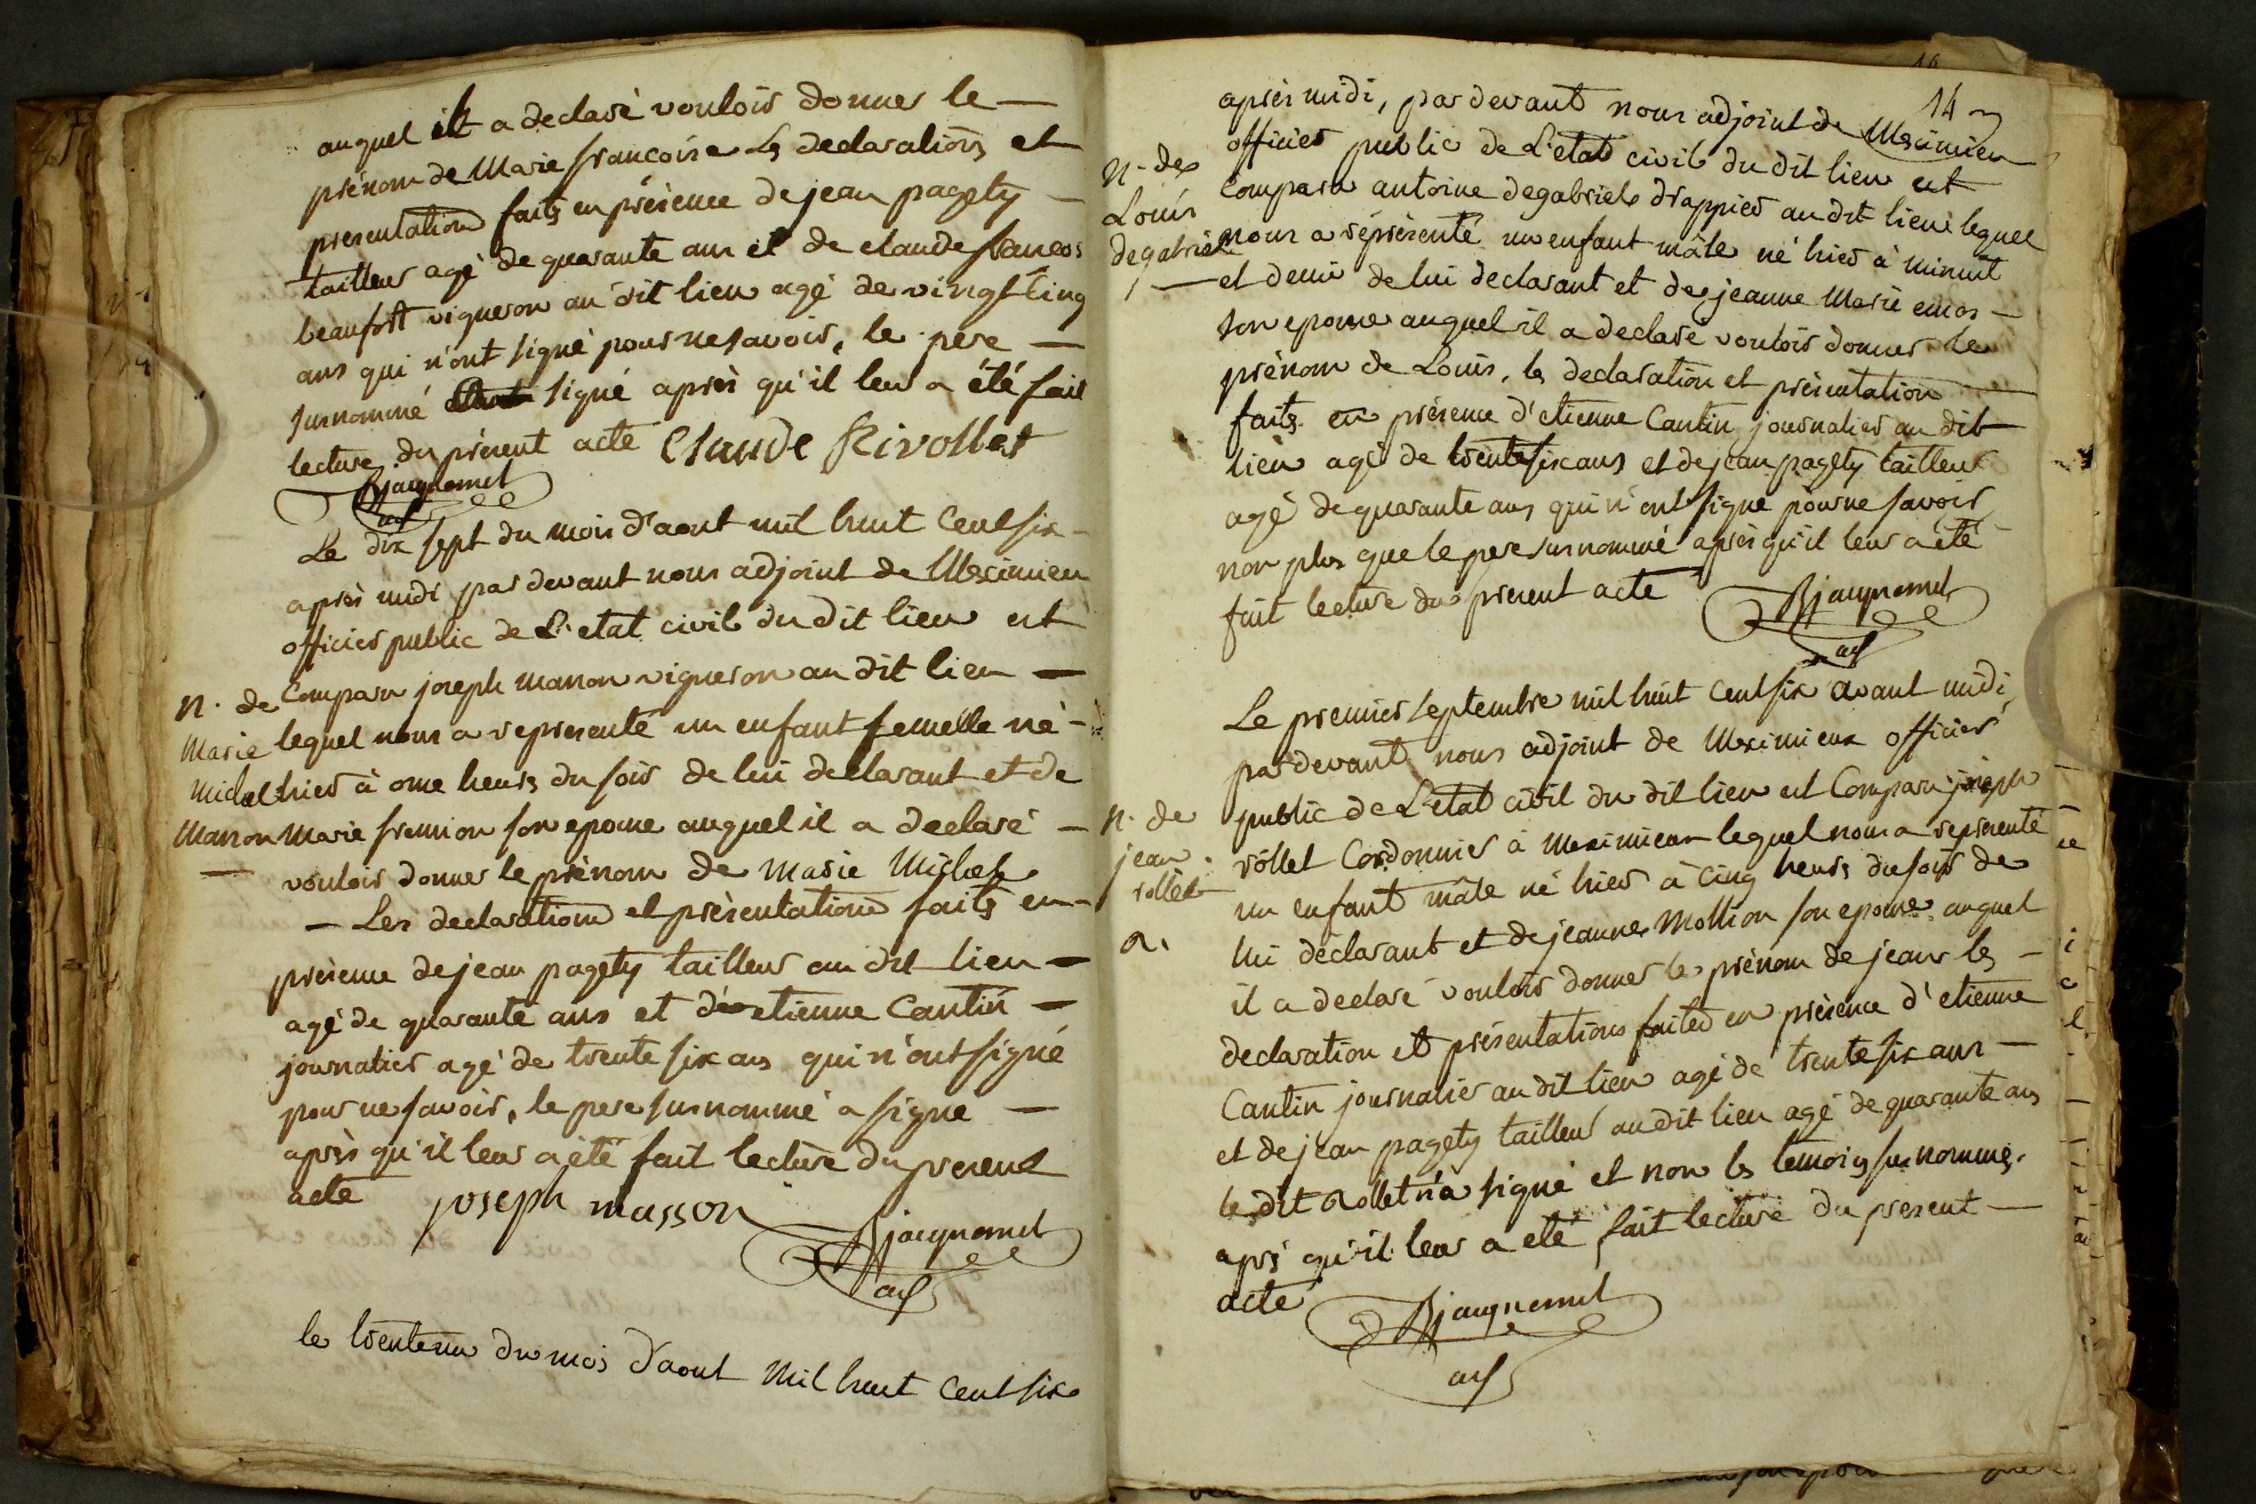 auquel il a declaré vouloir donner le —
prénom de Marie francoise Ls declarations et
presentation faits en présence de jean pagety —
tailleur agé de quarante ans et de claude francos
beaufort vigneron au dit lieu agé de vingt cinq
ans qui n'ont signé pour ne savoir, le pere —
surnommé signé après qu'il leur a été fait
lecture du présent acte Claude Rivollet
Bjacquemet
adj
Le dix sept du mois d'aout mil huit cent six -
après midi par devant nous adjoint de Meximieu
officier public de L'etat civil du dit lieu est
n. de comparu joseph manon vigneron au dit lieu —
Marie lequel nous a representé un enfant femelle né -
Michel hier à onze heurs du soir de lui declarant et de
Manon Marie fremion son epouse auquel il a declaré —
— vouloir donner le prénom de Marie Michel
— Les declaration et présentation faits en -
présence de jean pagety tailleur au dit lieu —
agé de quarante ans et d'etienne Cantin —
journalier agé de trente six ans qui n'ont signé
pour ne savoir, le pere surnommé a signé —
après qu'il leur a été fait lecture du present
acte joseph masson
Bjacquemet
adj
le trente un du mois d'aout Mil huit cent six
14
après midi, par devant nous adjoint de Meximieu
officier public de L'etat civil du dit lieu est
n. de comparu antoine degabriel drappier au dit lieu lequel
Louis nous a réprésenté un enfant mâle né hier à minuit
degabriel — et demi de lui declarant et de jeanne Marie —
son epouse auquel il a declaré vouloir donner le
prénom de Louis, ls declaration et présentation
faits en présence d'etienne Cantin journalier au dit
lieu agé de trente six ans et de jean pagety tailleur
agé de quarante ans qui n'ont signé pour ne savoir
non plus que le pere surnommé après qu'il leur a été
fait lecture du present acte
Bjacquemet
adj
Le premier septembre mil huit cent six avant midi
par devant nous adjoint de Meximieux officier
public de L'etat civil du dit lieu est comparu joseph
n. de rollet Cordonnier à Meximieux lequel nous a representé
jean un enfant mâle né hier à cinq heurs du soir de
rollet lui déclarant et de jeanne Mollion son epouse auquel
il a declaré vouloir donner le prénom de jean ls —
declaration et présentations faites en présence d'etienne
Cantin journalier au dit lieu agé de trente six ans —
et de jean pagety tailleur au dit lieu agé de quarante ans
le dit Rollet n'a signé et non ls temoins surnommés.
après qu'il leur a eté fait lecture du present —
acte
Bjacquemet
adj